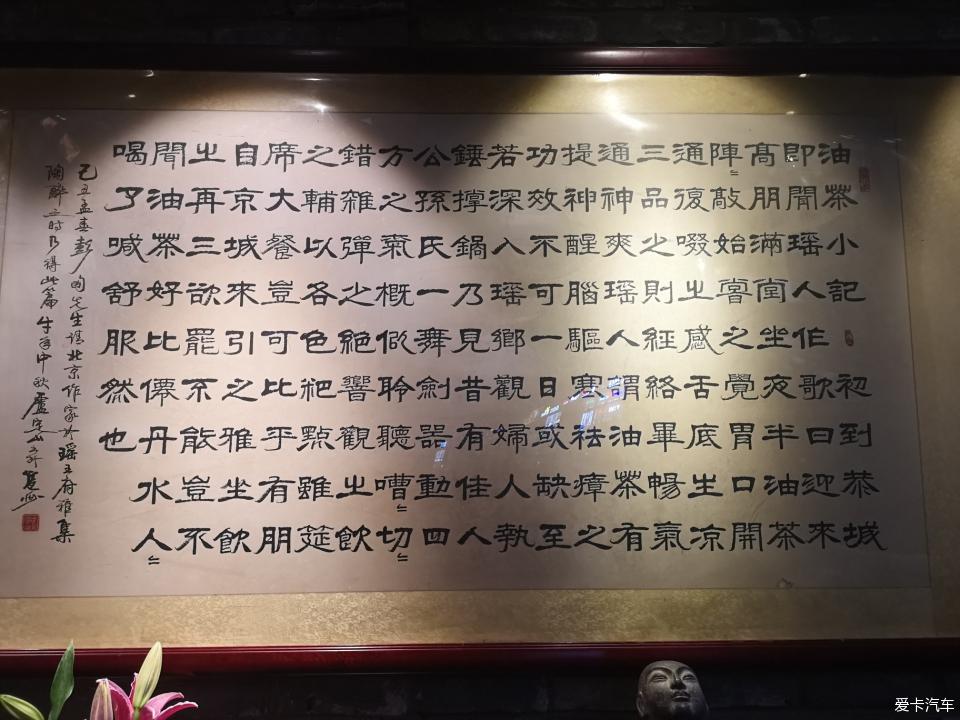 油茶小記 初到恭城
即聞瑶人作歌曰迎來
高朋滿坐夜半油茶
陣〻敲始嘗之覺胃口開
通復啜㞢感舌底生凉
三品之則經絡畢暢氣
通神爽瑶人謂油茶有
提神醒腦驅寒祛瘴之
功效不可一日或缺至
若深入瑶鄉觀婦人執
錘撑鍋乃見昔有佳人
公孫氏一舞劍器動四
方之氣概似聆聽嘈〻切〻
錯雜彈之絕響觀㞢飲
之輔以各色粑點雖筵
席大餐豈可比乎有朋
自京城來引之雅坐飲
㞢再三欲罷不能豈不
聞油茶好比僊丹水人〻
喝了喊舒服然也
己丑孟春彭先生北京作家於瑶王府雅集
陶醉之時乃得此篇 牛年中秋盧
爱卡汽车